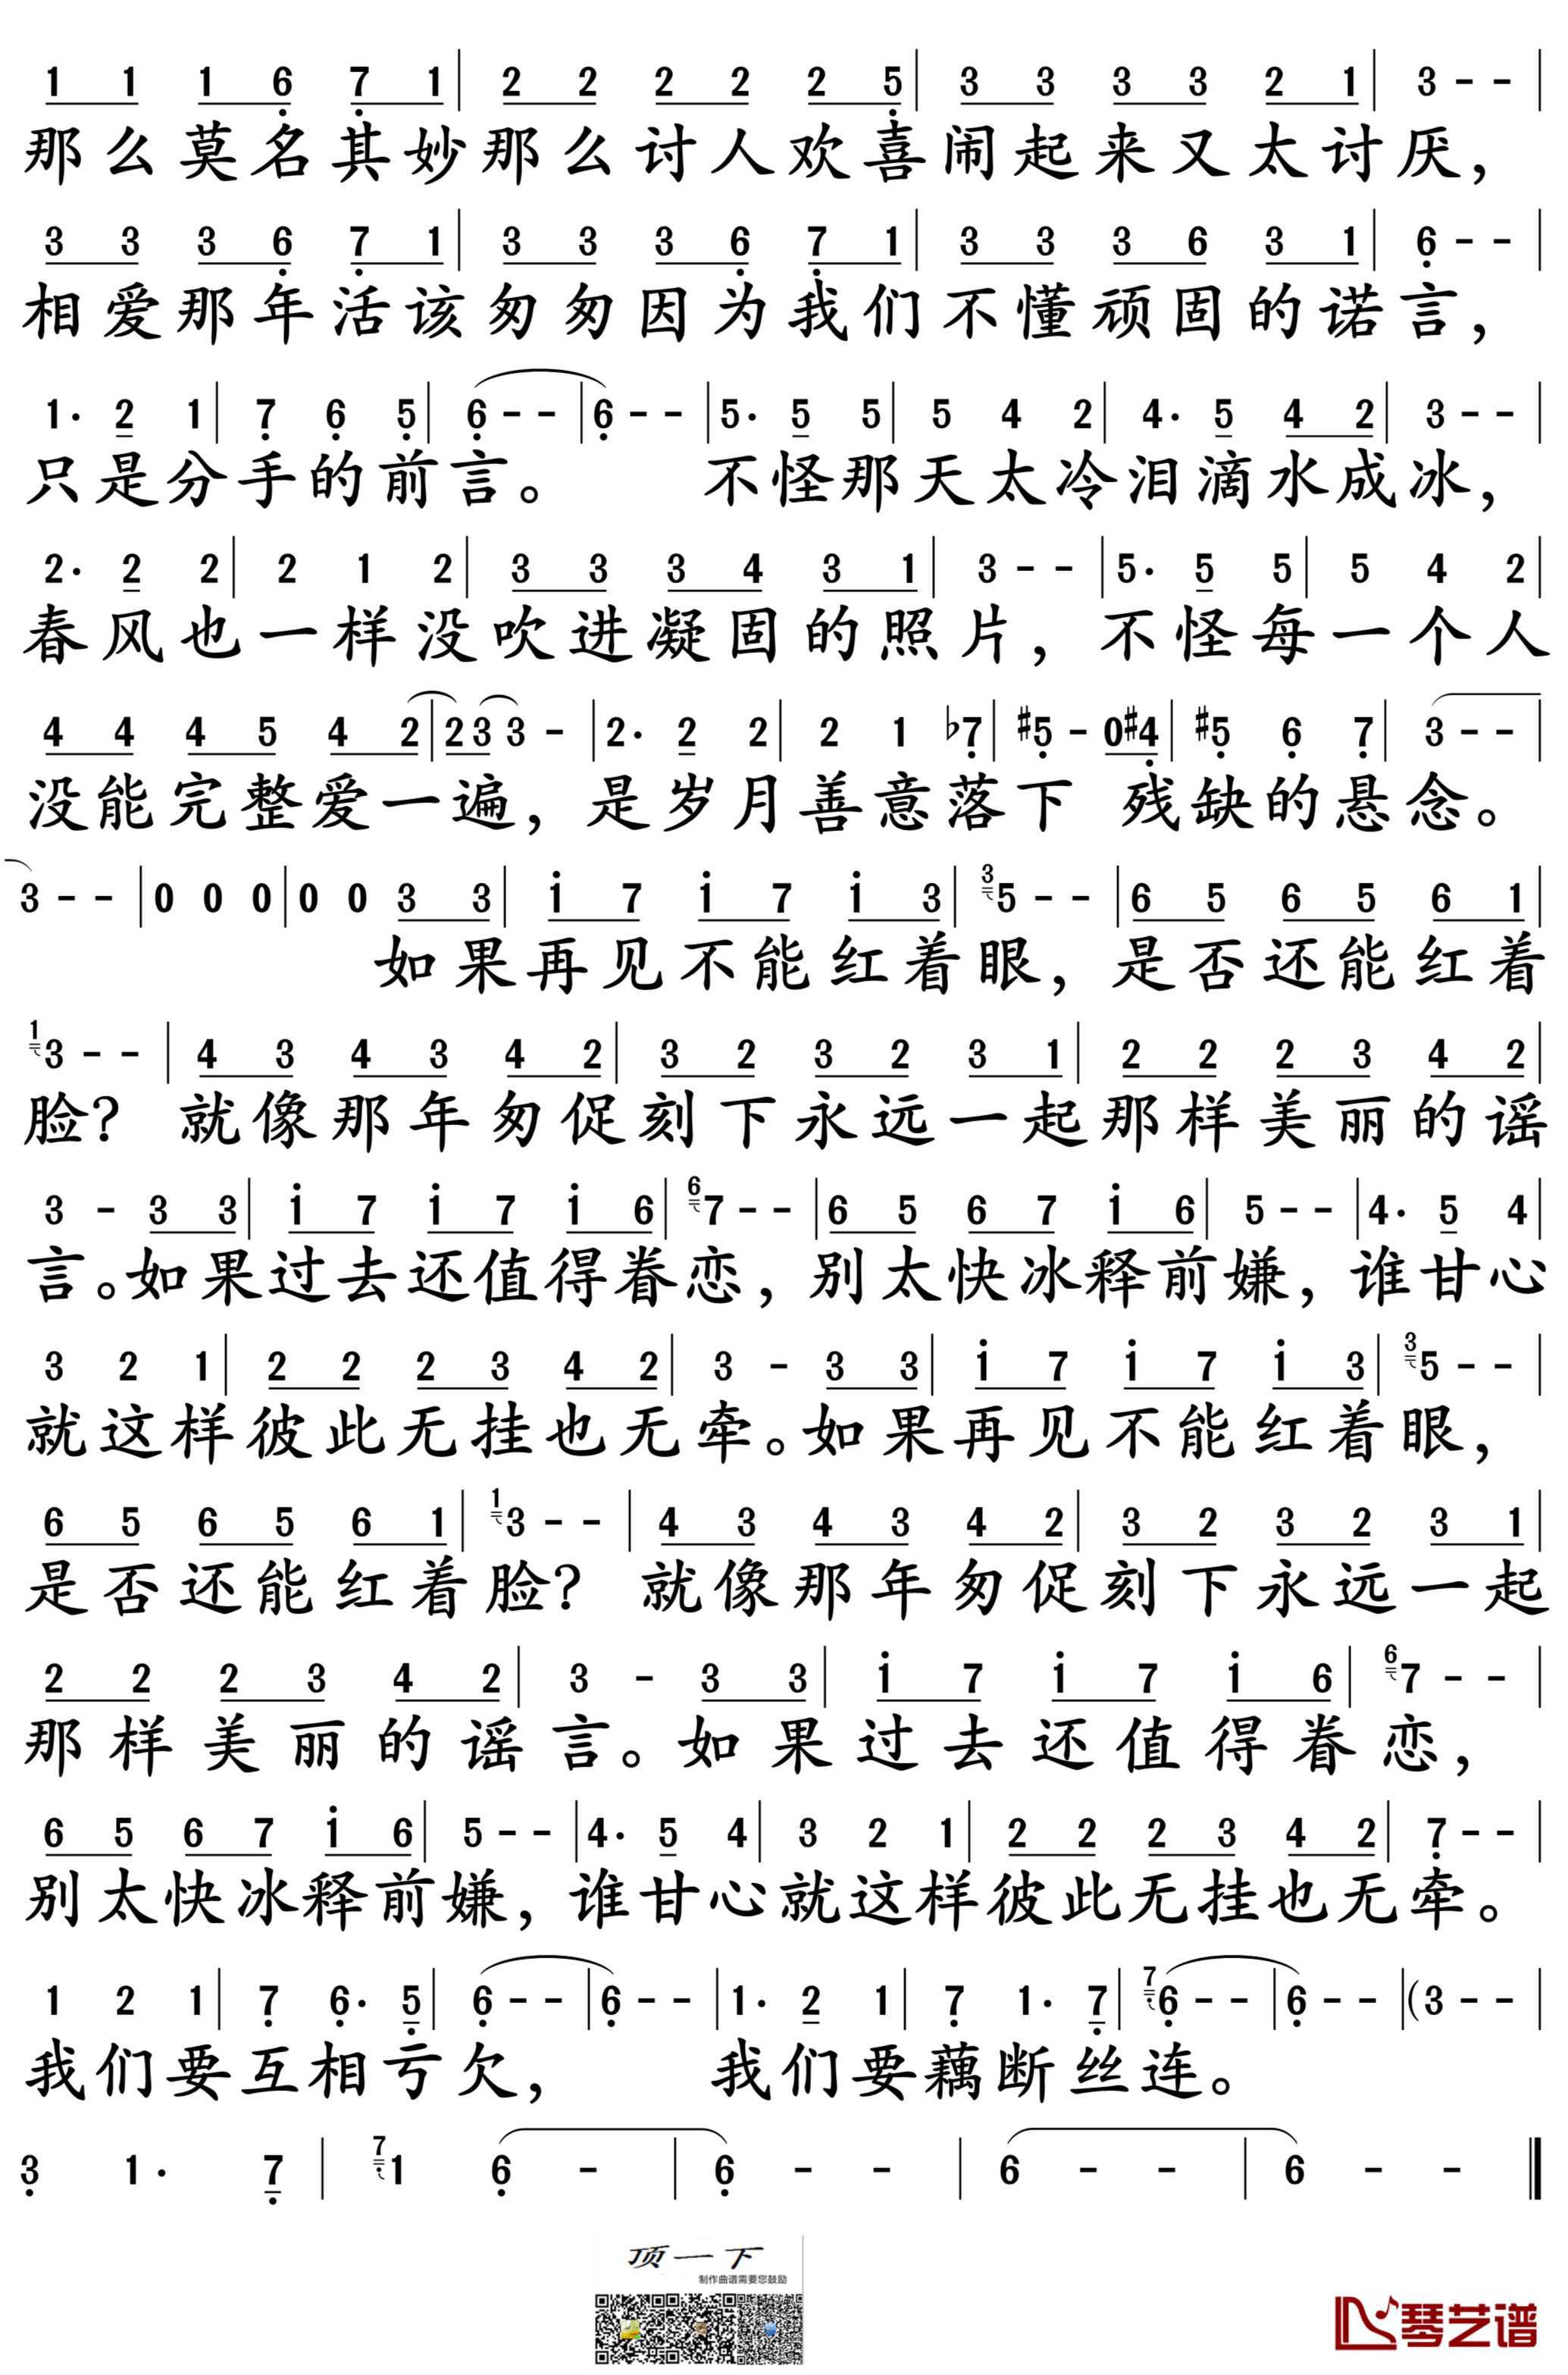 1 1 1 6 7 1 | 2 2 2 2 2 5 | 3 3 3 3 2 1 | 3 - - |
那么莫名其妙那么讨人欢喜闹起来又太讨厌，
3 3 3 6 7 1 | 3 3 3 6 7 1 | 3 3 3 6 3 1 | 6 - - |
相爱那年活该匆匆因为我们不懂顽固的诺言，
1· 2 1 | 7 6 5 | 6 - - | 6 - - | 5· 5 5 | 5 4 2 | 4· 5 4 2 | 3 - - |
只是分手的前言。 不怪那天太冷泪滴水成冰，
2· 2 2 | 2 1 2 | 3 3 3 4 3 1 | 3 - - | 5· 5 5 | 5 4 2 |
春风也一样没吹进凝固的照片，不怪每一个人
4 4 4 5 4 2 | 2 3 3 - | 2· 2 2 | 2 1 ♭7 | ♯5 - 0 ♯4 | ♯5 6 7 | 3 - - |
没能完整爱一遍，是岁月善意落下 残缺的悬念。
3 - - | 0 0 0 | 0 0 3 3 | i 7 i 7 i 3 | 3 5 - - | 6 5 6 5 6 1 |
如果再见不能红着眼，是否还能红着
1 3 - - | 4 3 4 3 4 2 | 3 2 3 2 3 1 | 2 2 2 3 4 2 |
脸？ 就像那年匆促刻下永远一起那样美丽的谣
3 - 3 3 | i 7 i 7 i 6 | 6 7 - - | 6 5 6 7 i 6 | 5 - - | 4· 5 4 |
言。如果过去还值得眷恋，别太快冰释前嫌，谁甘心
3 2 1 | 2 2 2 3 4 2 | 3 - 3 3 | i 7 i 7 i 3 | 3 5 - - |
就这样彼此无挂也无牵。如果再见不能红着眼，
6 5 6 5 6 1 | 1 3 - - | 4 3 4 3 4 2 | 3 2 3 2 3 1 |
是否还能红着脸？ 就像那年匆促刻下永远一起
2 2 2 3 4 2 | 3 - 3 3 | i 7 i 7 i 6 | 6 7 - - |
那样美丽的谣言。如果过去还值得眷恋，
6 5 6 7 i 6 | 5 - - | 4· 5 4 | 3 2 1 | 2 2 2 3 4 2 | 7 - - |
别太快冰释前嫌，谁甘心就这样彼此无挂也无牵。
1 2 1 | 7 6· 5 | 6 - - | 6 - - | 1· 2 1 | 7 1· 7 | 7 6 - - | 6 - - | (3 - - |
我们要互相亏欠， 我们要藕断丝连。
3 1· 7 | 7 1 6 - | 6 - - | 6 - - | 6 - - ‖
顶一下
制作曲谱需要您鼓励
琴艺谱